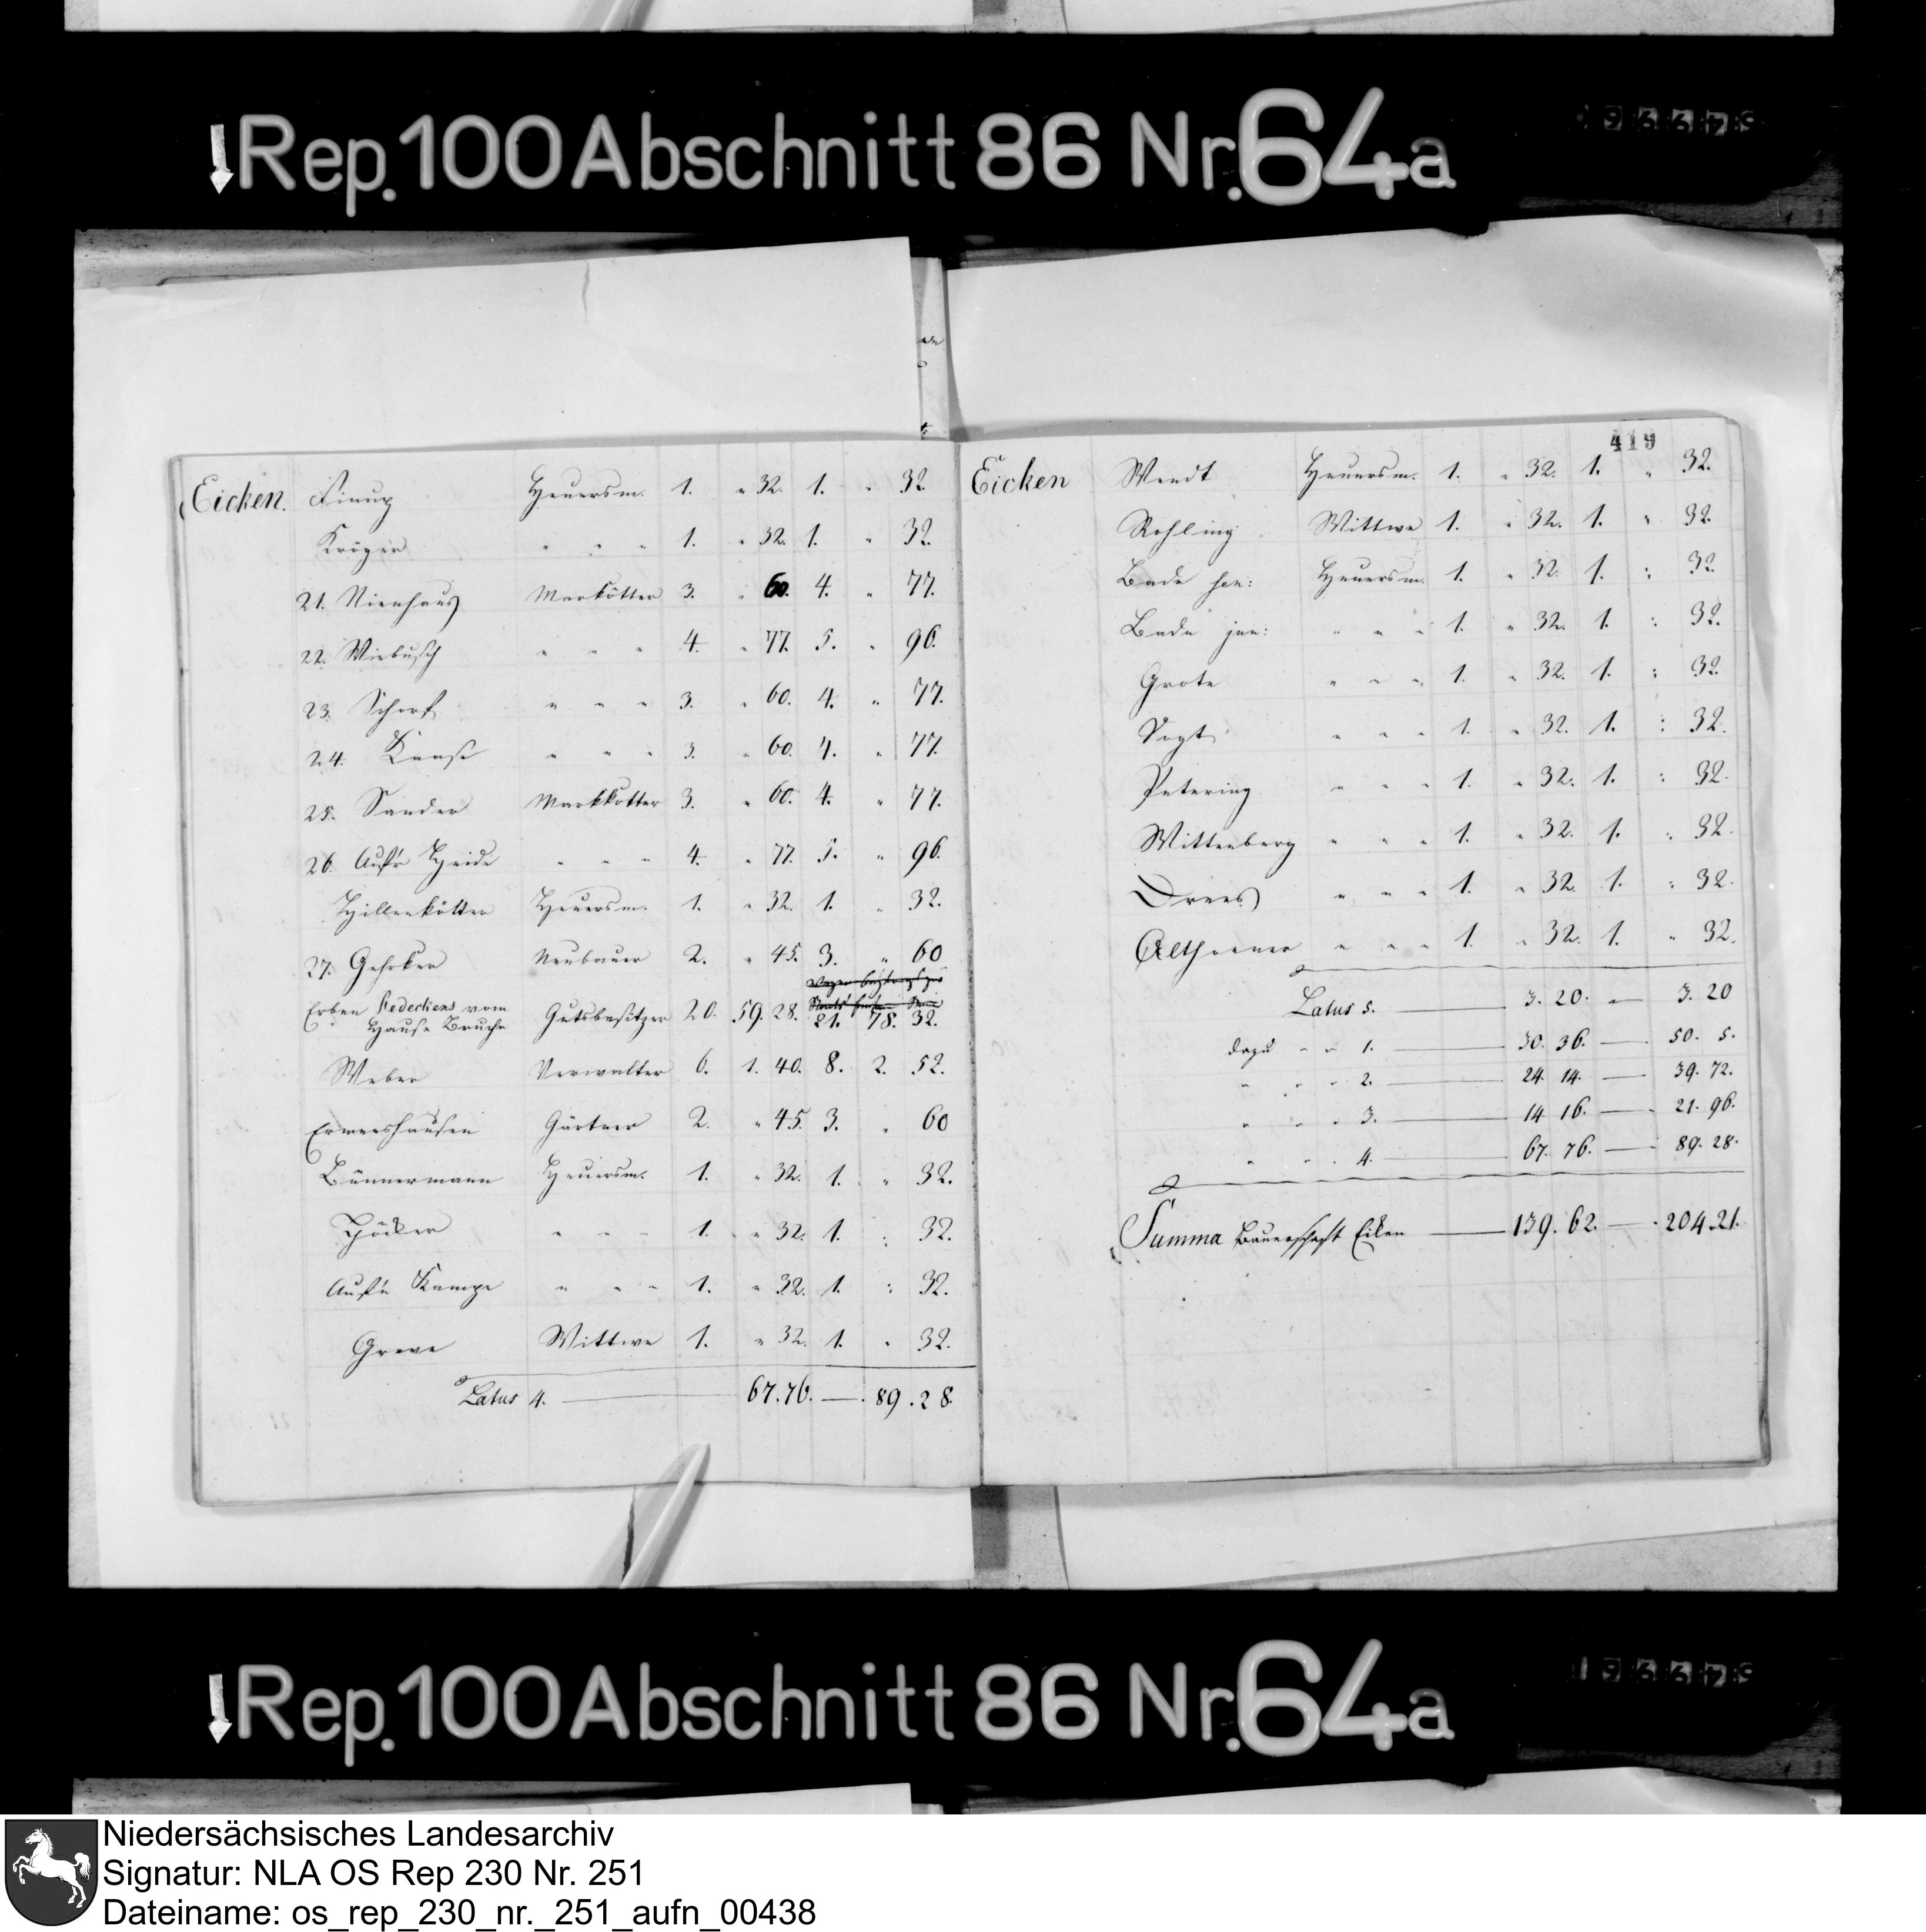 Rep. 100 Abschnitt 86 Nr. 64a
Eicken. Finup Heuersm. 1. " 32. 1. " 32.
Kröger " " " 1. " 32. 1. " 32.
21. Nienhaus Markötter 3. " 60. 4. " 77.
22. Wiebusch " " " 4. " 77. 5. " 96.
23. Schorf " " " 3. " 60. 4. " 77.
24. Kanse " " " 3. " 60. 4. " 77.
25. Sander Markkötter 3. " 60. 4. " 77.
26. Auf'r Heide " " " 4. " 77. 5. " 96.
Hillenkötter Heuersm. 1. " 32. 1. " 32.
27. Gehrker Neubauer 2. " 45. 3. " 60
Erben Redeckens vom
Hause Bruche Gutsbesitzer 20. 59. 28. 21. 78. 32.
Weber Verwalter 6. 1. 40. 8. 2. 52.
Ermershausen Gärtner 2. " 45. 3. " 60
Bünnermann Heuersm. 1. " 32. 1. " 32.
Höcker " " " 1. " 32. 1. : 32.
Auf'n Kampe " " " 1. " 32. 1. : 32.
Greve Wittwe 1. " 32. 1. " 32.
Latus 4. — 67. 76. — 89. 28.
419
Eicken Wendt Heuersm. 1. " 32. 1. " 32.
Rohling Wittwe 1. " 32. 1. " 32.
Bade sen: Heuersm. 1. " 32. 1. : 32.
Bade jun: " " " 1. " 32. 1. : 32.
Grote " " " 1. " 32. 1. : 32.
Vogt " " " 1. " 32. 1. : 32.
Petering " " " 1. " 32. 1. : 32.
Wittenberg " " " 1. " 32. 1. : 32.
Drees " " " 1. " 32. 1. : 32.
Althoener " " " 1. " 32. 1. " 32.
Latus 5. — 3. 20. — 3. 20
dazu " " 1. — 30. 36. — 50. 5.
" " " 2. — 24. 14. — 39. 72.
" " " 3. — 14 16. — 21. 96.
" " " 4. — 67. 76. — 89. 28.
Summa Bauerschaft Eiken — 139. 62. — 204. 21.
Rep. 100 Abschnitt 86 Nr. 64a
Niedersächsisches Landesarchiv
Signatur: NLA OS Rep 230 Nr. 251
Dateiname: os_rep_230_nr._251_aufn_00438